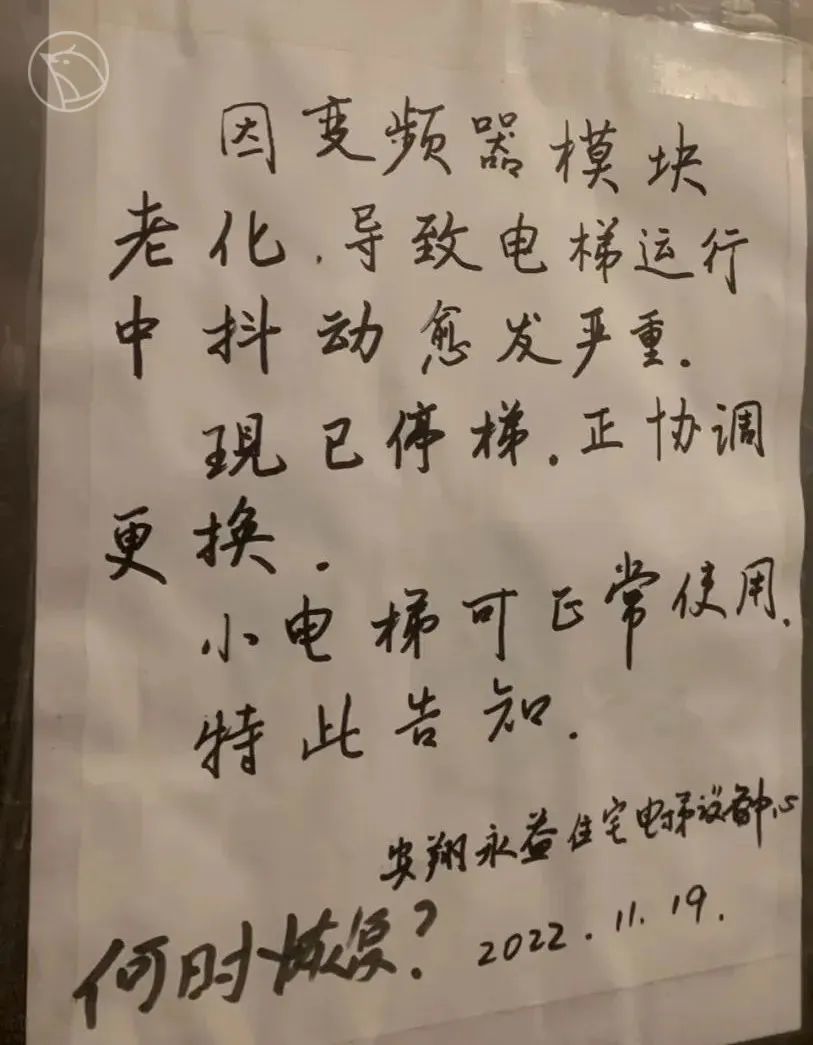 因变频器模块
老化.导致电梯运行
中抖动愈发严重.
现已停梯.正协调
更换.
小电梯可正常使用.
特此告知.
安翔永益住宅电梯设备中心
何时恢复?
2022.11.19.